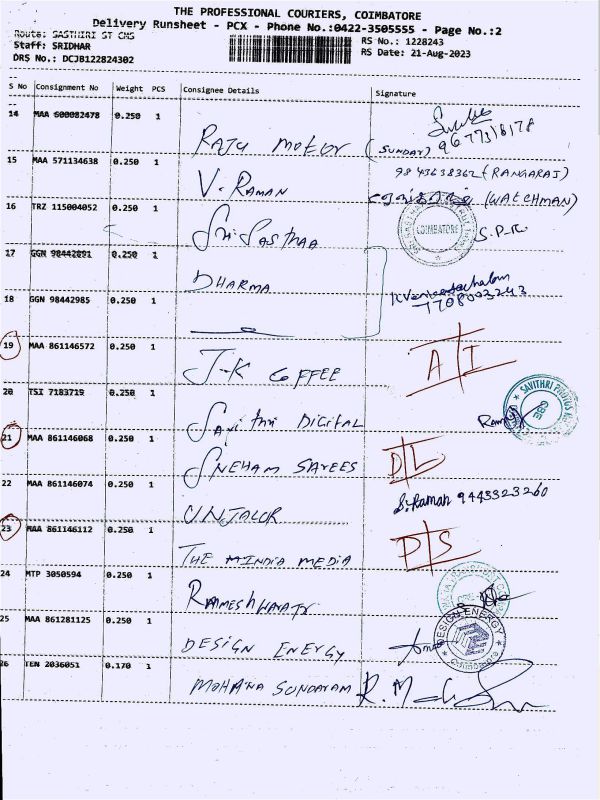 THE PROFESSIONAL COURIERS, COIMBATORE
Delivery Runsheet - PCX - Phone No.:0422-3505555 - Page No.:2
Route: SASTHIRI ST CMS
RS No.: 1228243
Staff: SRIDHAR
RS Date: 21-Aug-2023
DRS No.: DCJB122824302
S No Consignment No Weight PCS Consignee Details Signature
14 MAA 600082478 0.250 1
RAJU MOTOR (SUNDAY) 9677318178
15 MAA 571134638 0.250 1
9843638362 (RANGARAJ)
V. RAMAN (WATCHMAN)
16 TRZ 115004052 0.250 1
COIMBATORE
Sri SASTHAA S.P.R.
17 GGN 98442091 0.250 1
DHARMA
K Venkatachalam
7708003243
18 GGN 98442985 0.250 1
19 MAA 861146572 0.250 1
J-K COFFEE A I
20 TSI 7183719 0.250 1
SAVITHRI PHOTOS
CBE
SAVITHRI DIGITAL
21 MAA 861146068 0.250 1
SNEHAM SAREES D L
22 MAA 861146074 0.250 1
S. Raman 9443323260
23 MAA 861146112 0.250 1
THE MINDIA MEDIA P S
24 MTP 3050594 0.250 1
25 MAA 861281125 0.250 1
DESIGN ENERGY
DESIGN ENERGY
26 TEN 2036051 0.170 1
MOHANA SUNDARAM